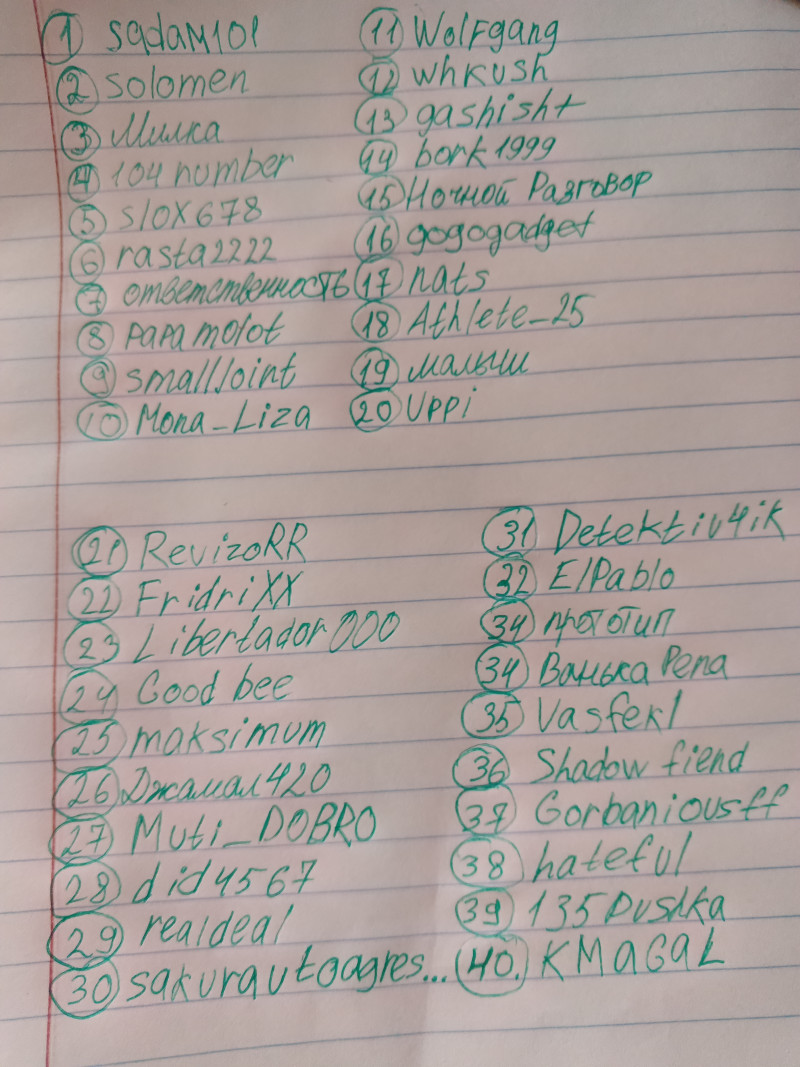 1 sqdam101
2 solomen
3 Милка
4 104 number
5 slox678
6 rasta2222
7 ответственность
8 papa molot
9 smallJoint
10 Mona_Liza
11 WolFgang
12 whkush
13 gashisht
14 bork1999
15 Ночной Разговор
16 gogogadget
17 nats
18 Athlete_25
19 малыш
20 Uppi
21 RevizoRR
22 FridriXX
23 Libertador000
24 Good bee
25 maksimum
26 Джамал420
27 Muti_DOBRO
28 did4567
29 realdeal
30 sakurautoagres...
31 Detektiv4ik
32 ElPablo
34 прототип
34 Ванька Репа
35 Vasfekl
36 Shadow fiend
37 Gorbaniousff
38 hateful
39 135 Pushka
40. KMAGAL